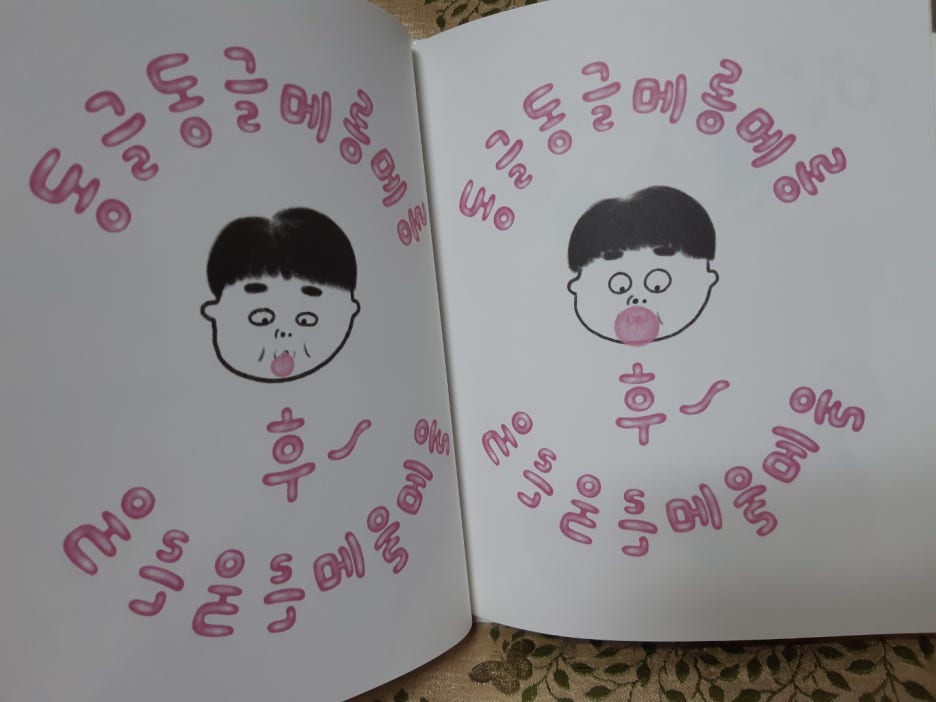 동글동글메롱메롱
후~
동글동글메롱메롱
동글동글메롱메롱
후~
동글동글메롱메롱